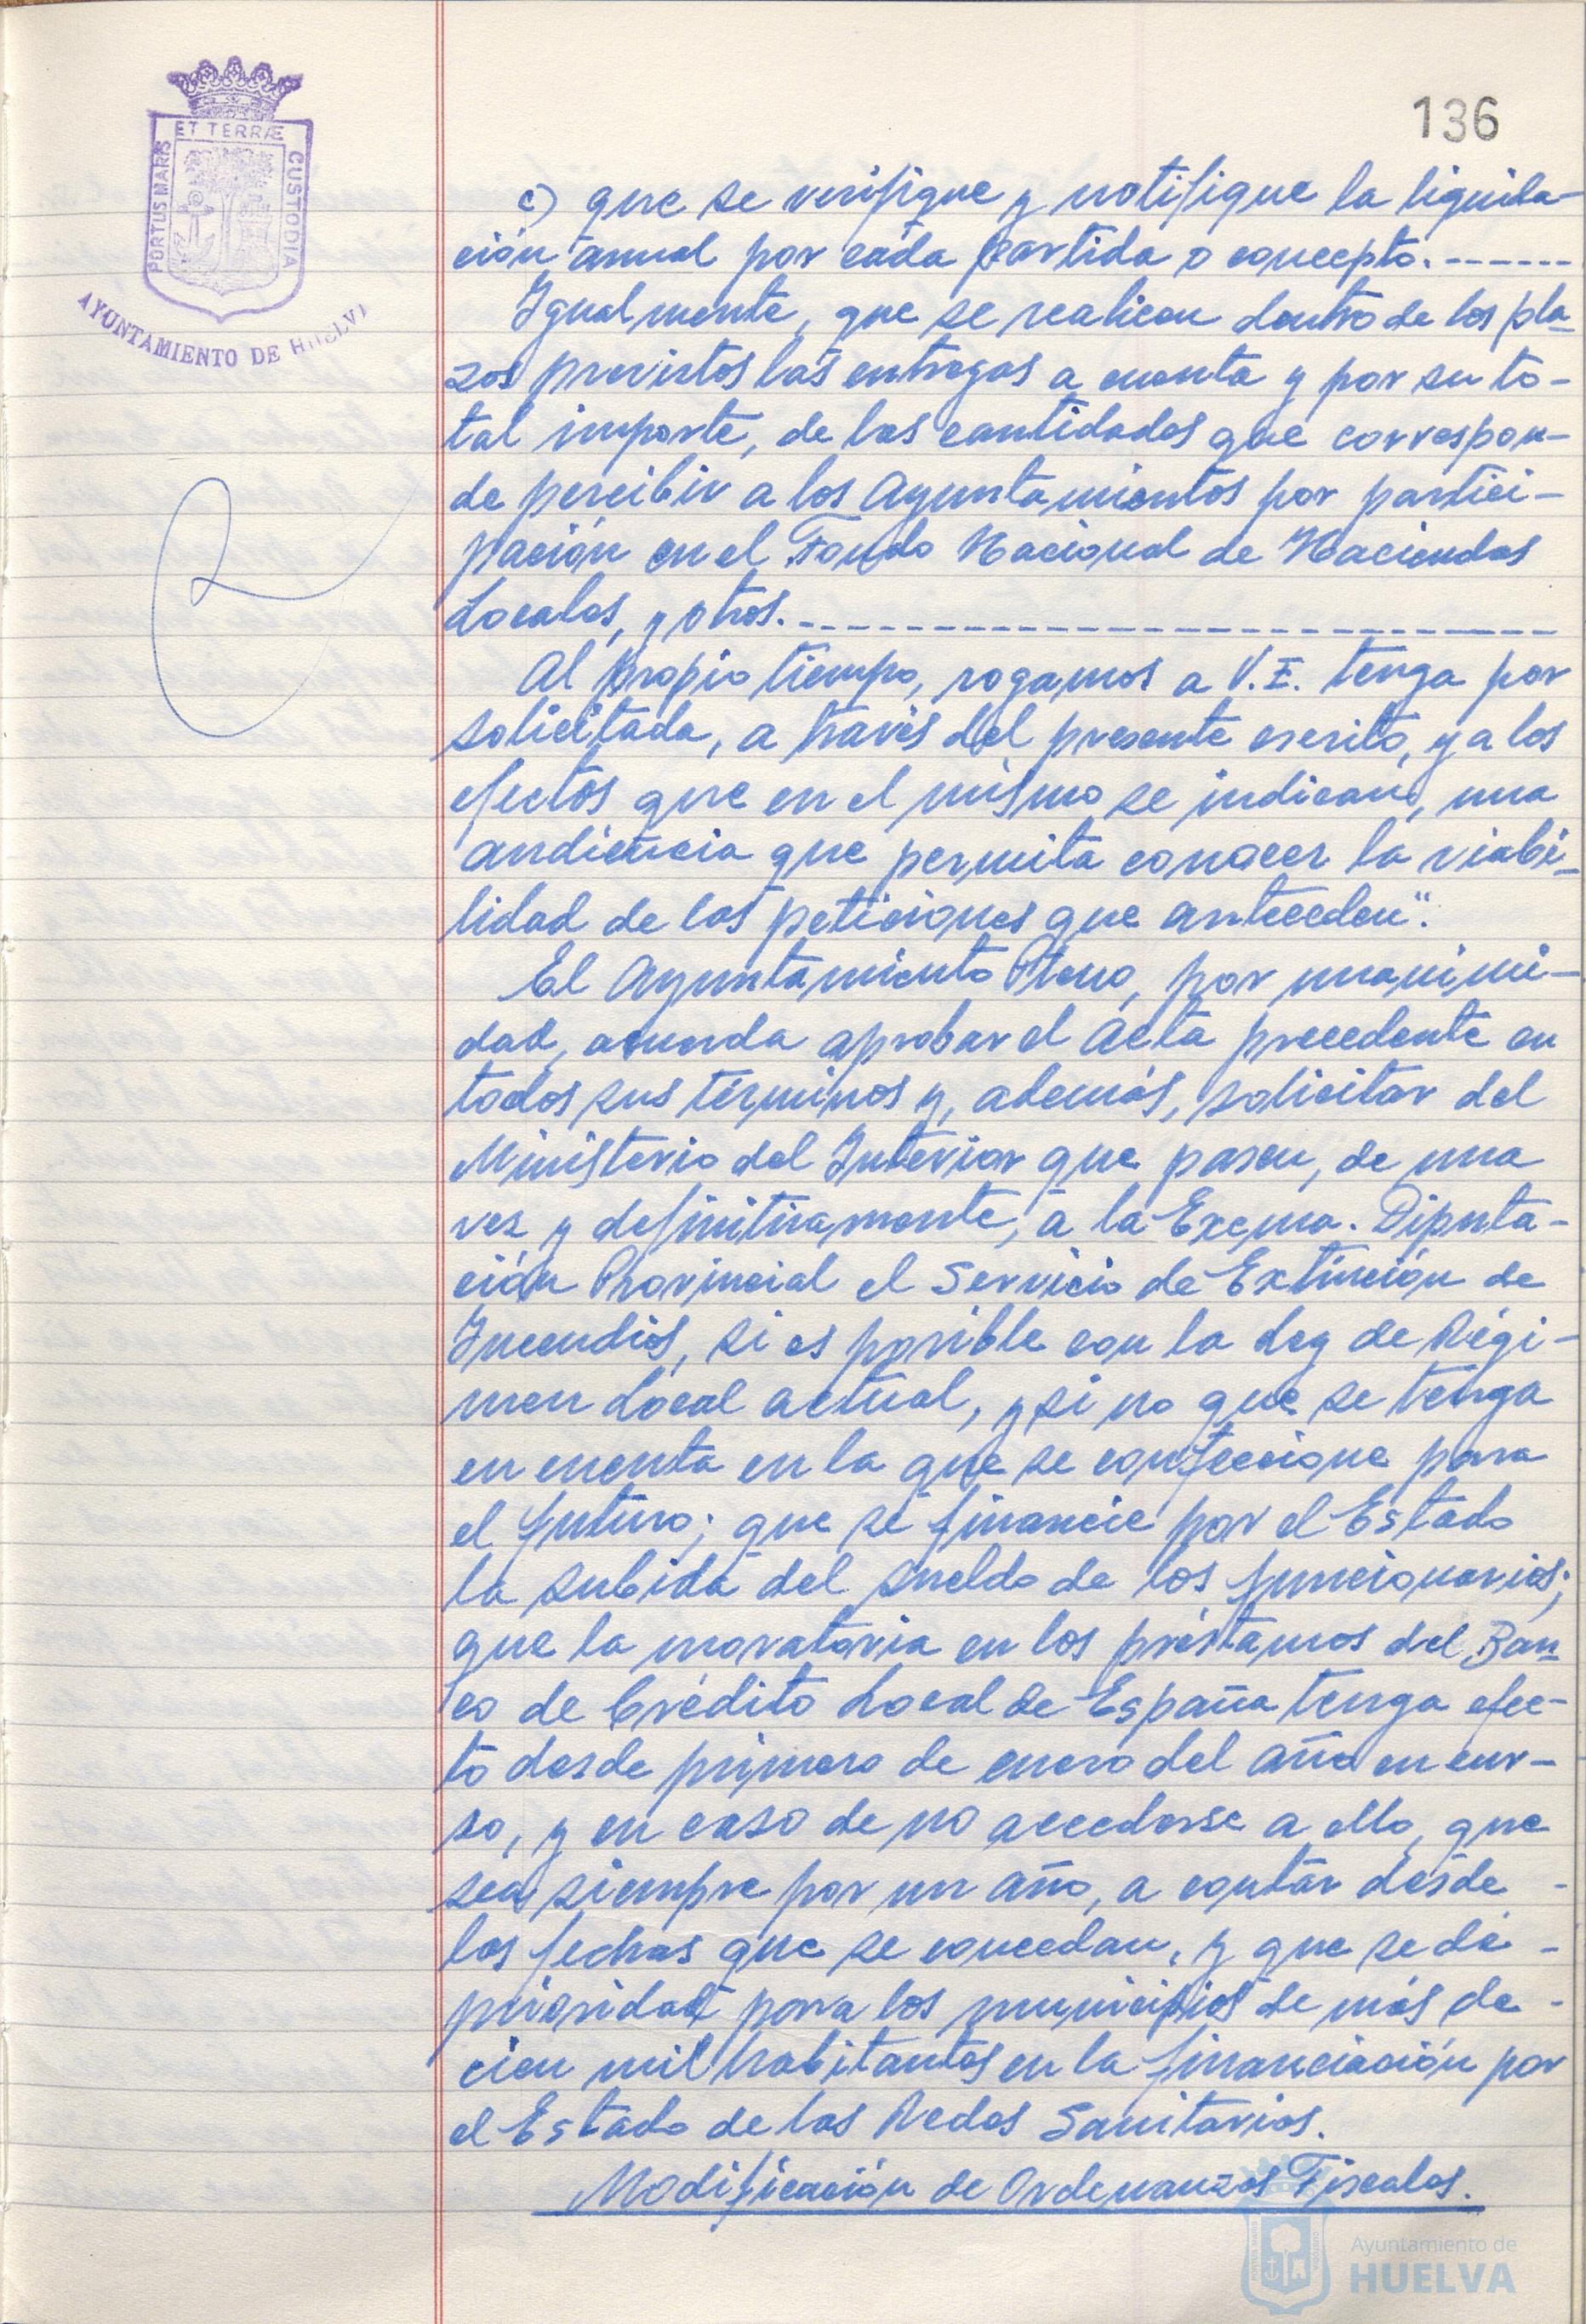 136
ET TERRÆ
PORTUS MARIS
CUSTODIA
AYUNTAMIENTO DE HUELVA
c) que se verifique y notifique la liquida-
ción anual por cada partida o concepto.------
Igualmente, que se realicen dentro de los pla-
zos previstos las entregas a cuenta y por su to-
tal importe, de las cantidades que correspon-
de percibir a los Ayuntamientos por partici-
pación en el Fondo Nacional de Haciendas
Locales, y otros.---------------------------
Al propio tiempo, rogamos a V.E. tenga por
solicitada, a través del presente escrito, y a los
efectos que en el mismo se indican, una
audiencia que permita conocer la viabi-
lidad de las peticiones que anteceden".
El Ayuntamiento Pleno, por unanimi-
dad, acuerda aprobar el Acta precedente en
todos sus términos y, además, solicitar del
Ministerio del Interior que pasen, de una
vez y definitivamente, a la Excma. Diputa-
ción Provincial el Servicio de Extinción de
Incendios, si es posible con la Ley de Régi-
men Local actual, y si no que se tenga
en cuenta en la que se confeccione para
el futuro; que se financie por el Estado
la subida del sueldo de los funcionarios;
que la moratoria en los préstamos del Ban-
co de Crédito Local de España tenga efec-
to desde primero de enero del año en cur-
so, y en caso de no accederse a ello, que
sea siempre por un año, a contar desde -
las fechas que se concedan, y que se dé -
prioridad para los municipios de más de -
cien mil habitantes en la financiación por
el Estado de las Redes Sanitarias.
Modificación de Ordenanzas Fiscales.
Ayuntamiento de
HUELVA